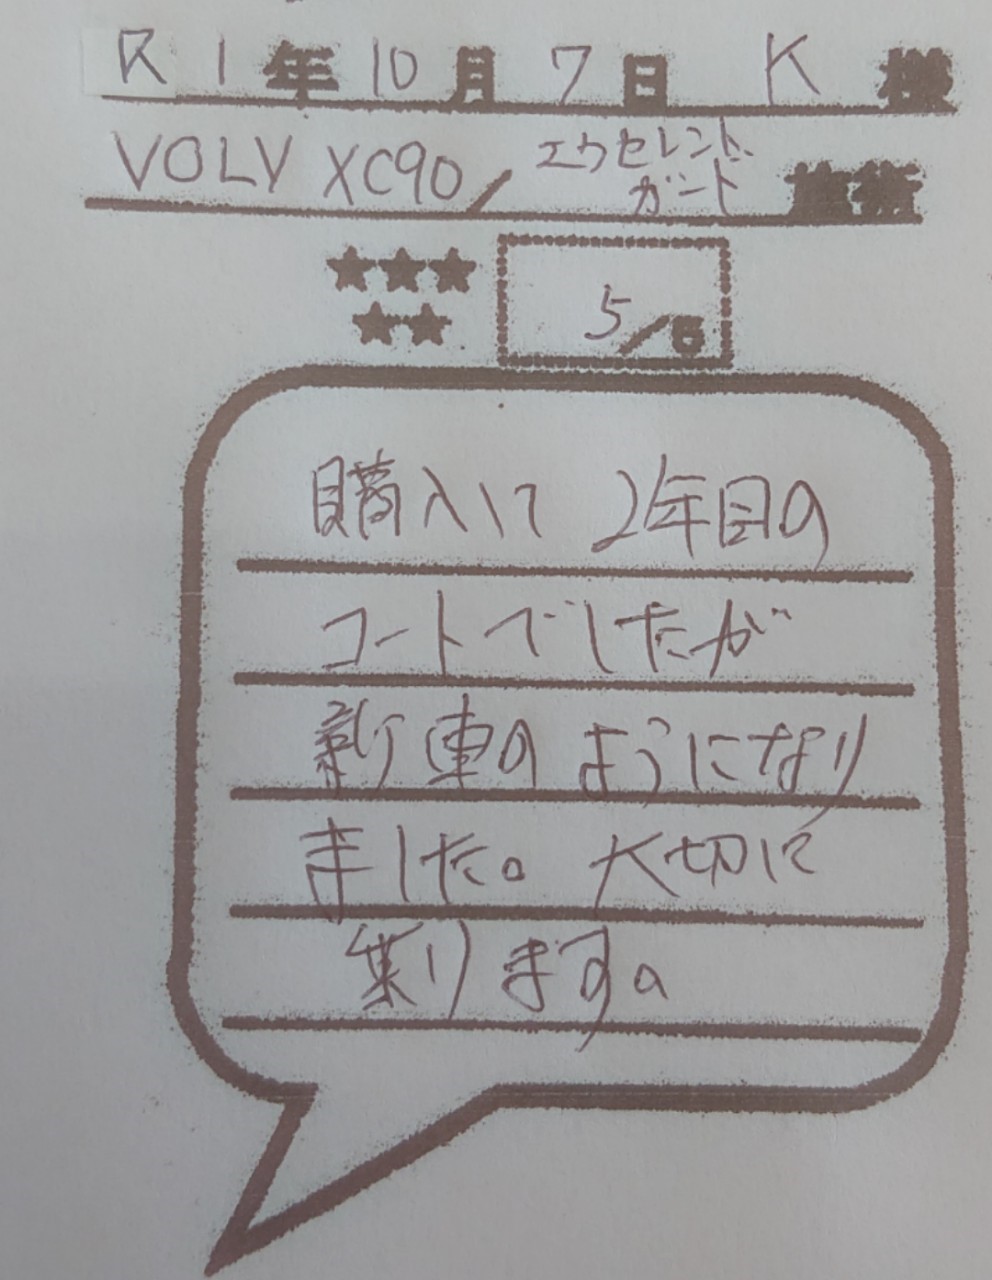 R 1年 10月 7日 K 様
VOLV XC90/エクセレントガード 施術
★★★
★★
5/5
購入して 2年目の
コートでしたが
新車のようになり
ました。大切に
乗ります。